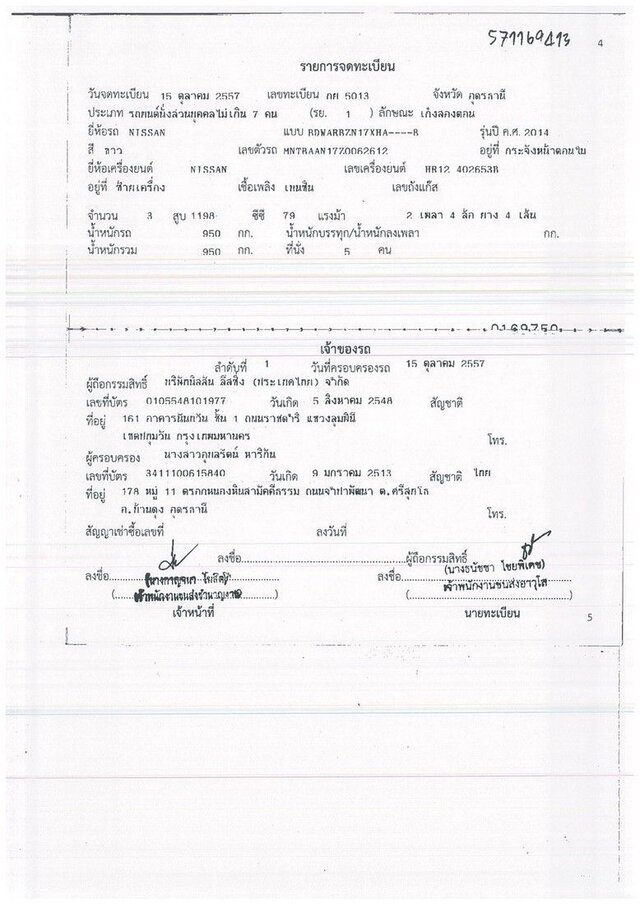 571169413 4
รายการจดทะเบียน
วันจดทะเบียน 15 ตุลาคม 2557 เลขทะเบียน กย 5013 จังหวัด อุดรธานี
ประเภท รถยนต์นั่งส่วนบุคคลไม่เกิน 7 คน (รย. 1 ) ลักษณะ เก๋งสองตอน
ยี่ห้อรถ NISSAN แบบ BDWARBZN17XHA----B รุ่นปี ค.ศ. 2014
สี ขาว เลขตัวรถ MNTBAAN17Z0062612 อยู่ที่ กระจังหน้าตอนใน
ยี่ห้อเครื่องยนต์ NISSAN เลขเครื่องยนต์ HR12 402653B
อยู่ที่ ซ้ายเครื่อง เชื้อเพลิง เบนซิน เลขถังแก๊ส
จำนวน 3 สูบ 1198 ซีซี 79 แรงม้า 2 เพลา 4 ล้อ ยาง 4 เส้น
น้ำหนักรถ 950 กก. น้ำหนักบรรทุก/น้ำหนักลงเพลา กก.
น้ำหนักรวม 950 กก. ที่นั่ง 5 คน
0169750
เจ้าของรถ
ลำดับที่ 1 วันที่ครอบครองรถ 15 ตุลาคม 2557
ผู้ถือกรรมสิทธิ์ บริษัทนิสสัน ลีสซิ่ง (ประเทศไทย) จำกัด
เลขที่บัตร 0105548101977 วันเกิด 5 สิงหาคม 2548 สัญชาติ
ที่อยู่ 161 อาคารนันทวัน ชั้น 1 ถนนราชดำริ แขวงลุมพินี
เขตปทุมวัน กรุงเทพมหานคร โทร.
ผู้ครอบครอง นางสาวอุบลรัตน์ หาริกัน
เลขที่บัตร 3411100615840 วันเกิด 9 มกราคม 2513 สัญชาติ ไทย
ที่อยู่ 178 หมู่ 11 ตรอกหนองหินสามัคคีธรรม ถนนจำปาพัฒนา ต.ศรีสุทโธ
อ.บ้านดุง อุดรธานี โทร.
สัญญาเช่าซื้อเลขที่ ลงวันที่
ลงชื่อ ผู้ถือกรรมสิทธิ์
ลงชื่อ ลงชื่อ (นางธนัชชา ไชยพิเดช)
เจ้าพนักงานขนส่งชำนาญงาน เจ้าพนักงานขนส่งอาวุโส
เจ้าหน้าที่ นายทะเบียน 5